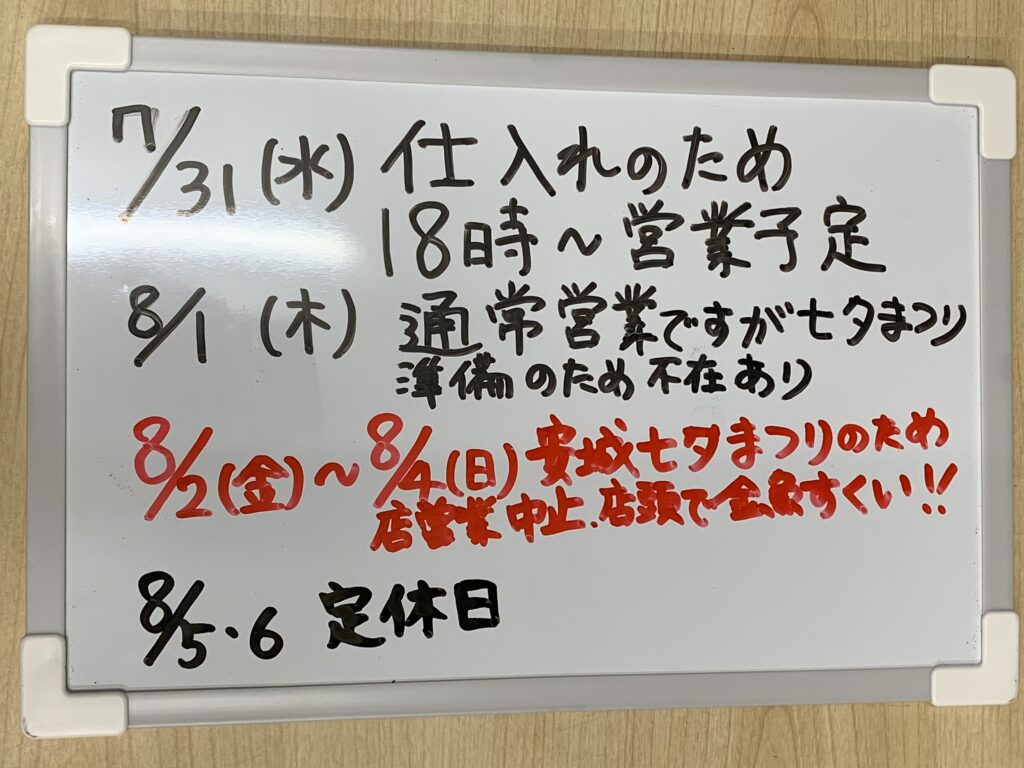 7/31(水) 仕入れのため
18時～営業予定
8/1 (木) 通常営業ですが七夕まつり
準備のため不在あり
8/2(金)～8/4(日)安城七夕まつりのため
店営業中止.店頭で金魚すくい!!
8/5・6 定休日